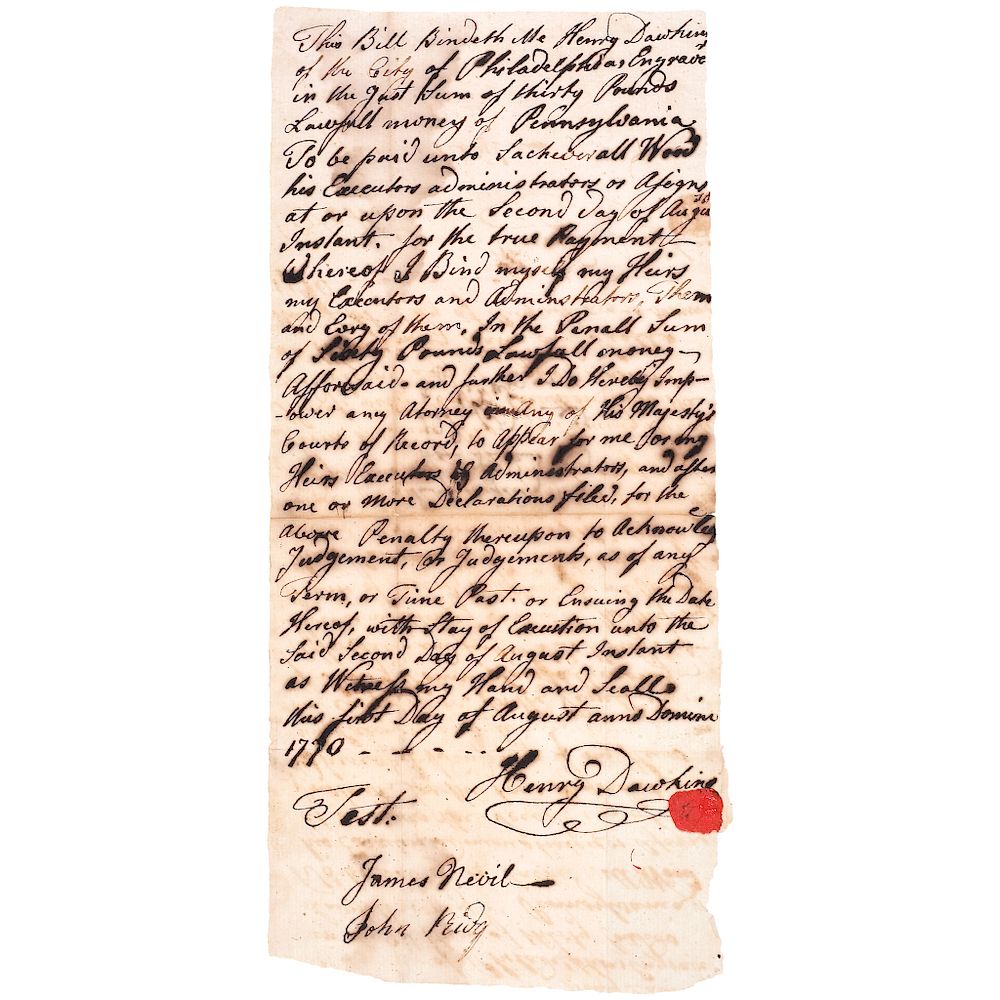 This Bill Bindeth Me Henry Dawkins
of the City of Philadelphia, Engraver
in the Just Sum of thirty Pounds
Lawfull money of Pennsylvania
To be paid unto Sacheverall Wood
his Executors administrators or Asigns
at or upon the Second day of August
Instant. for the true Payment
Whereof I Bind myself my Heirs
my Executors and Adminstrators, Them
and Evry of them, In the Penall Sum
of Sixty Pounds Lawfull money—
Afforesaid - and further I Do Hereby Imp-
-ower any Atorney in Any of His Majesty's
Courts of Record, to Appear for me or my
Heirs Executors or Administrators, and after
one or More Declarations filed, for the
Above Penalty thereupon to Acknowleg
Judgement, Or Judgements, as of any
Term, or Time Past. or Ensuing the Date
Hereof, with Stay of Execution unto the
Said Second Day of August Instant
as Witness my Hand and Seall
this first Day of August anno Domini
1770 - - - - -
Henry Dawkins
Test.
James Nevil
John